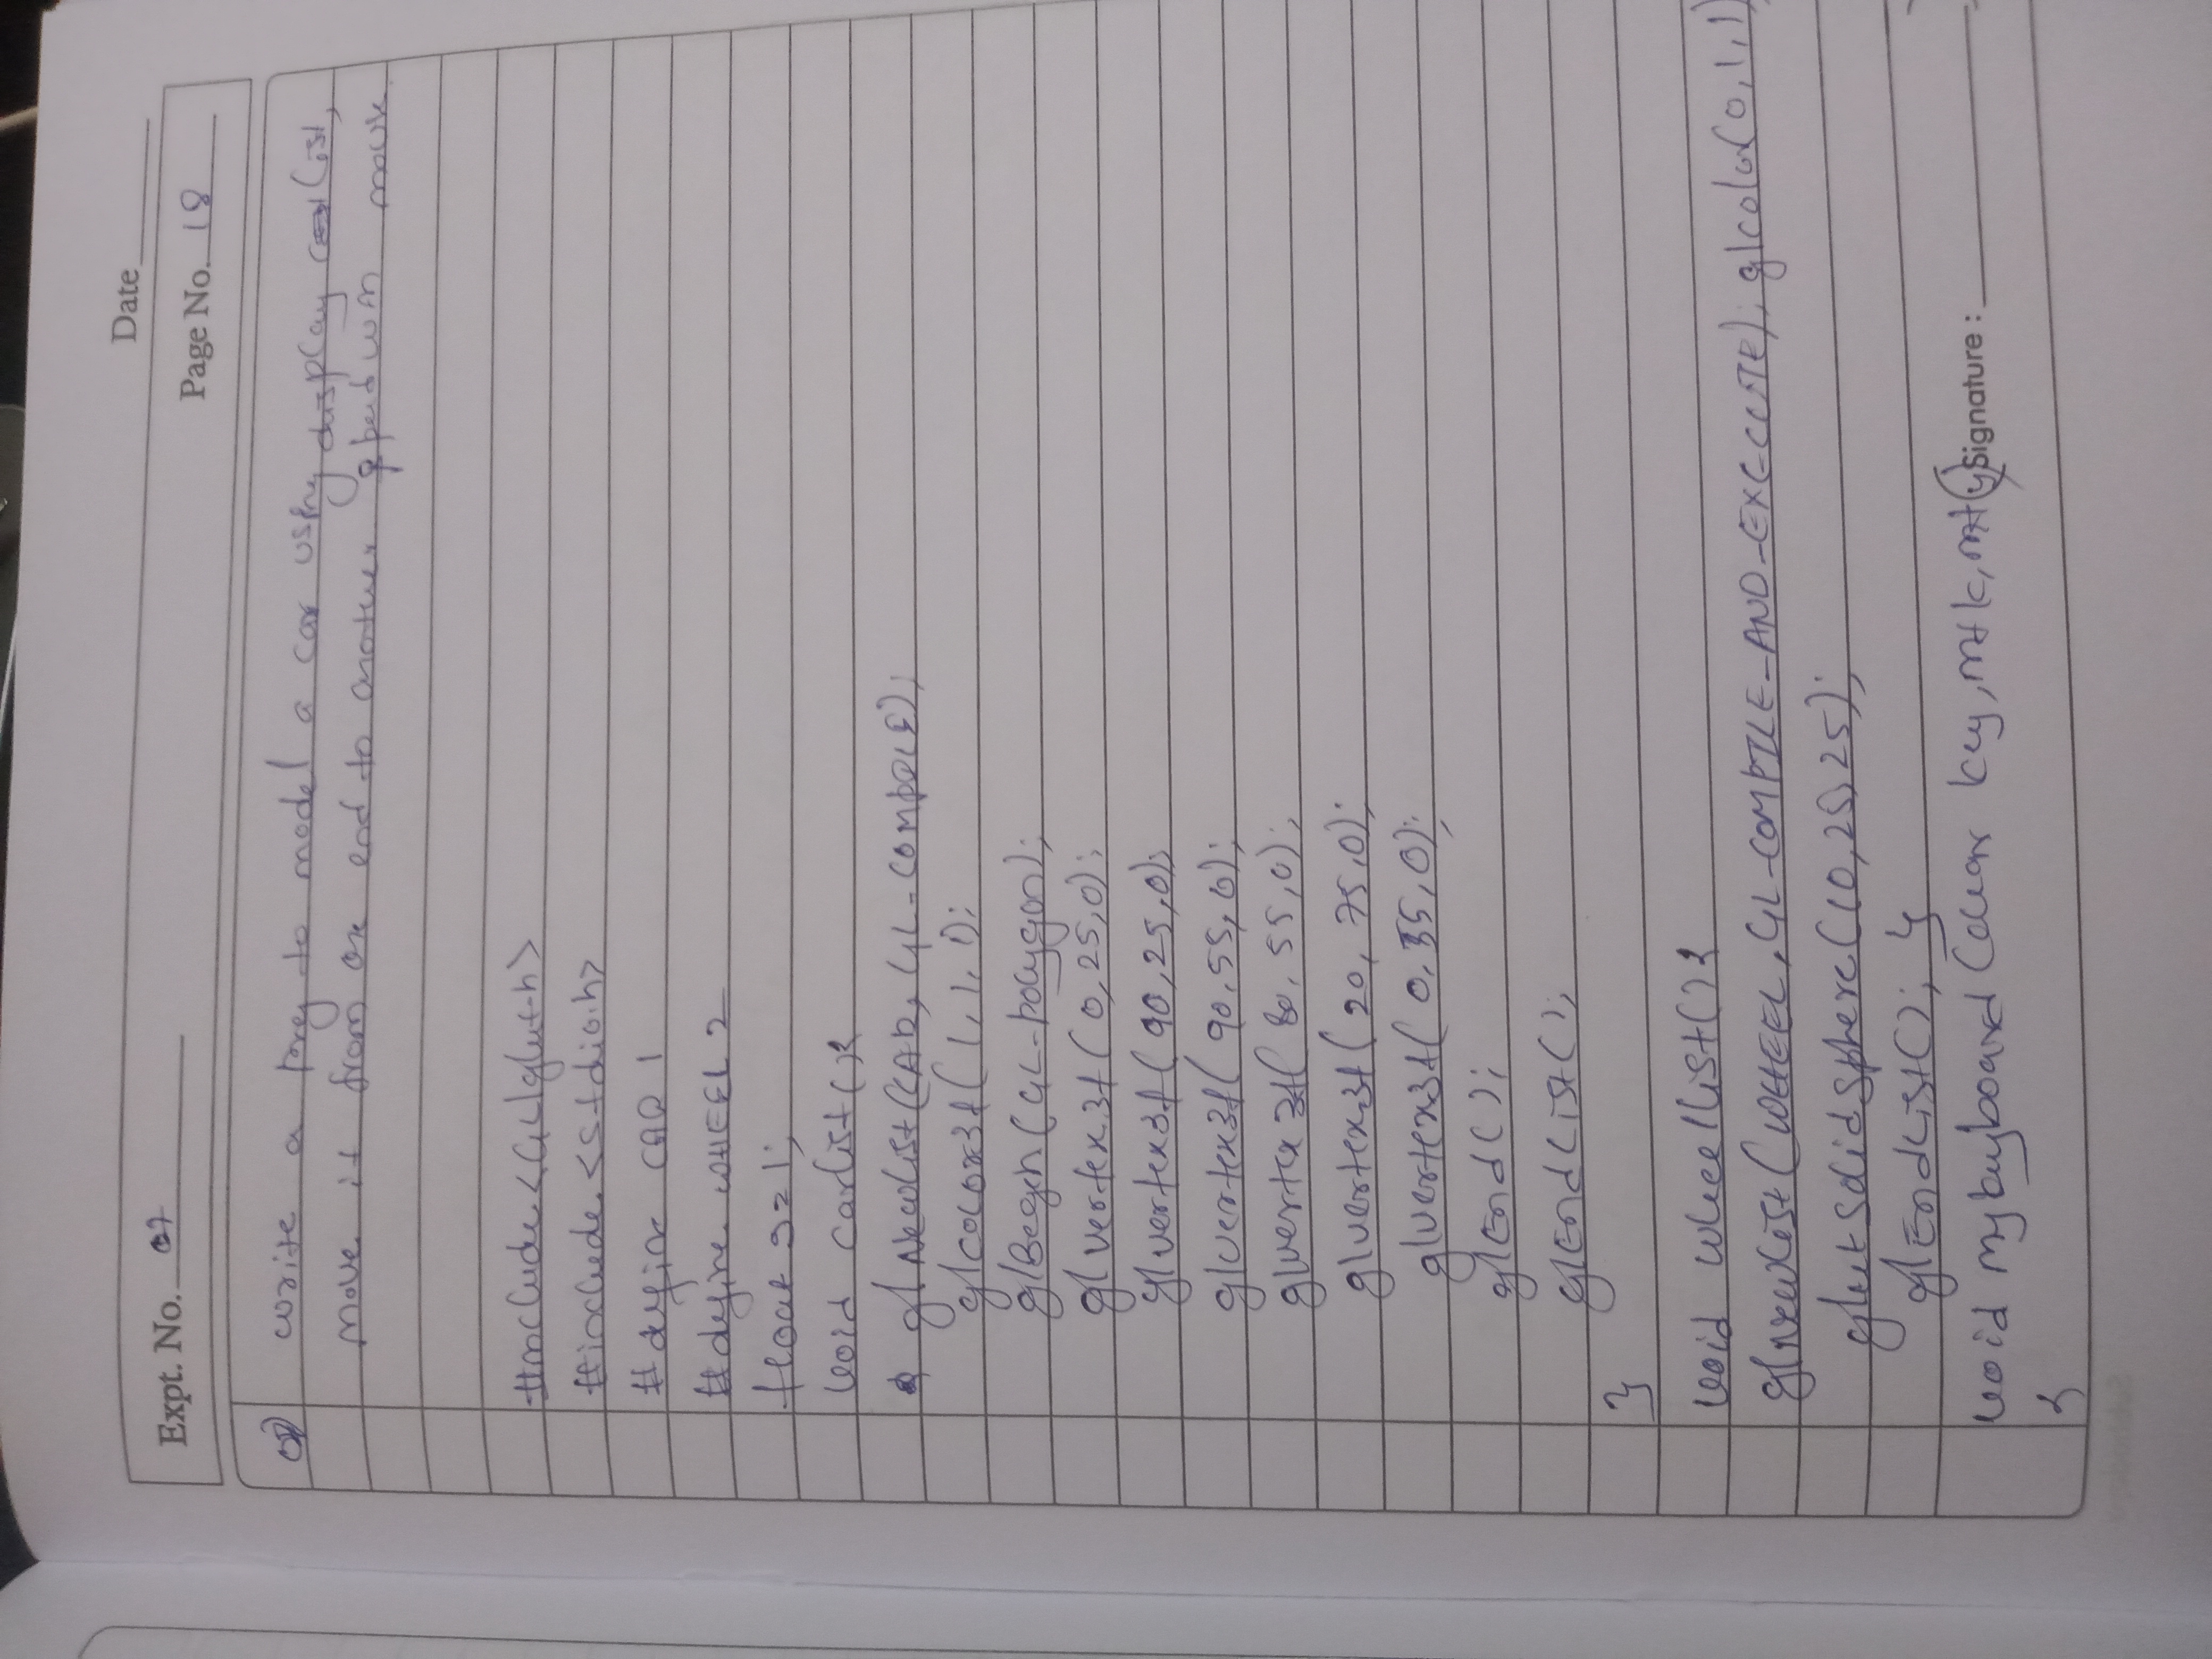 Date
Expt. No. 07
Page No. 18
07 write a prog to model a car using display list,
move it from one end to another speed wn mouse
#include <GL/glut.h>
#include <stdio.h>
#define CAR 1
#define WHEEL 2
float s=1;
void carlist(){
glNewList(CAR, GL_COMPILE);
glcolor3f(1,1,1);
glBegin(GL_polygon);
glvertex3f(0,25,0);
glvertex3f(90,25,0);
glvertex3f(90,55,0);
glvertex3f(80,55,0);
glvertex3f(20,75,0);
glvertex3f(0,35,0);
glEnd();
glEndList();
}
void wheellist(){
glnewlist(WHEEL,GL-COMPILE-AND-EXCCUTE); glcolor(0,1,1)
glutsolidsphere(10,25,25);
glEndList(); }
void mykeyboard(char key, int k, int y)
{
Signature :